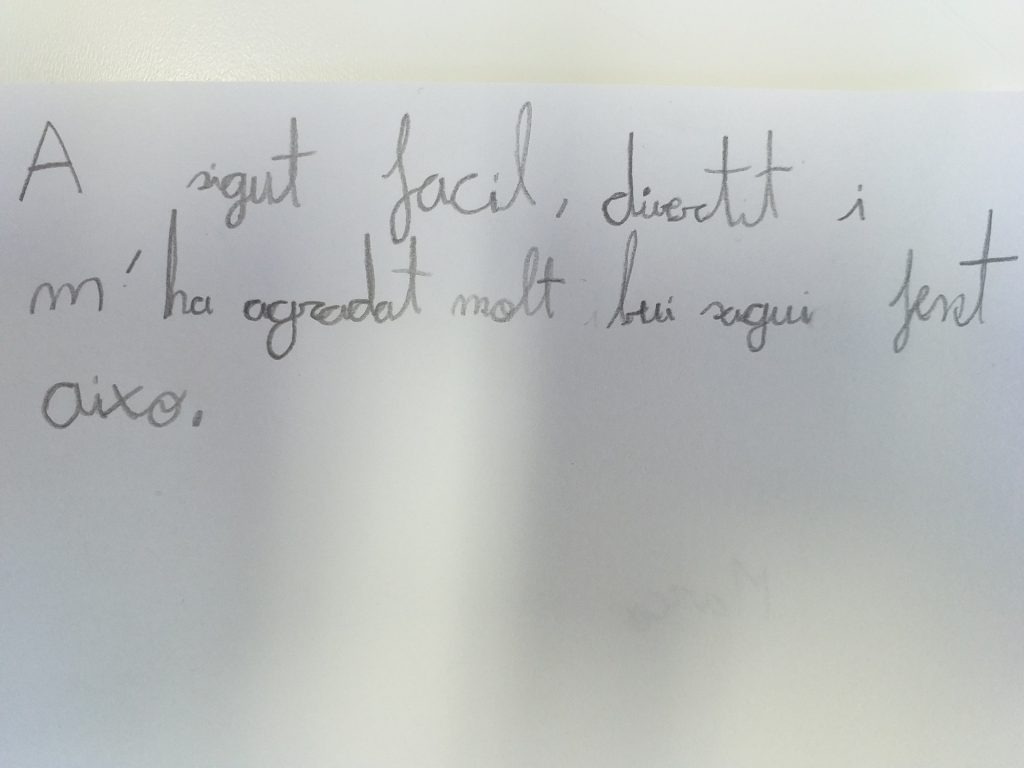 A sigut facil, divertit i
m'ha agradat molt sagui fent
aixo.